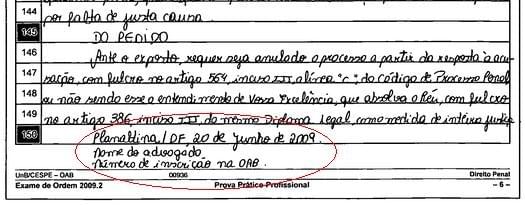 144 por falta de justa causa.
145 DO PEDIDO
146 Ante o exposto, requer seja anulado o processo a partir da resposta à acu-
147 sação, com fulcro no artigo 564, inciso III, alínea "c", do Código de Processo Penal
148 ou não sendo esse o entendimento de Vossa Excelência, que absolva o Réu, com fulcro
149 no artigo 386, inciso III, do mesmo Diploma Legal, como medida de inteira justiça.
150 Planaltina/DF 20 de junho de 2009.
nome do advogado
número de inscrição na OAB.
UnB/CESPE – OAB 00936 Direito Penal
Exame de Ordem 2009.2 Prova Prático-Profissional – 6 –